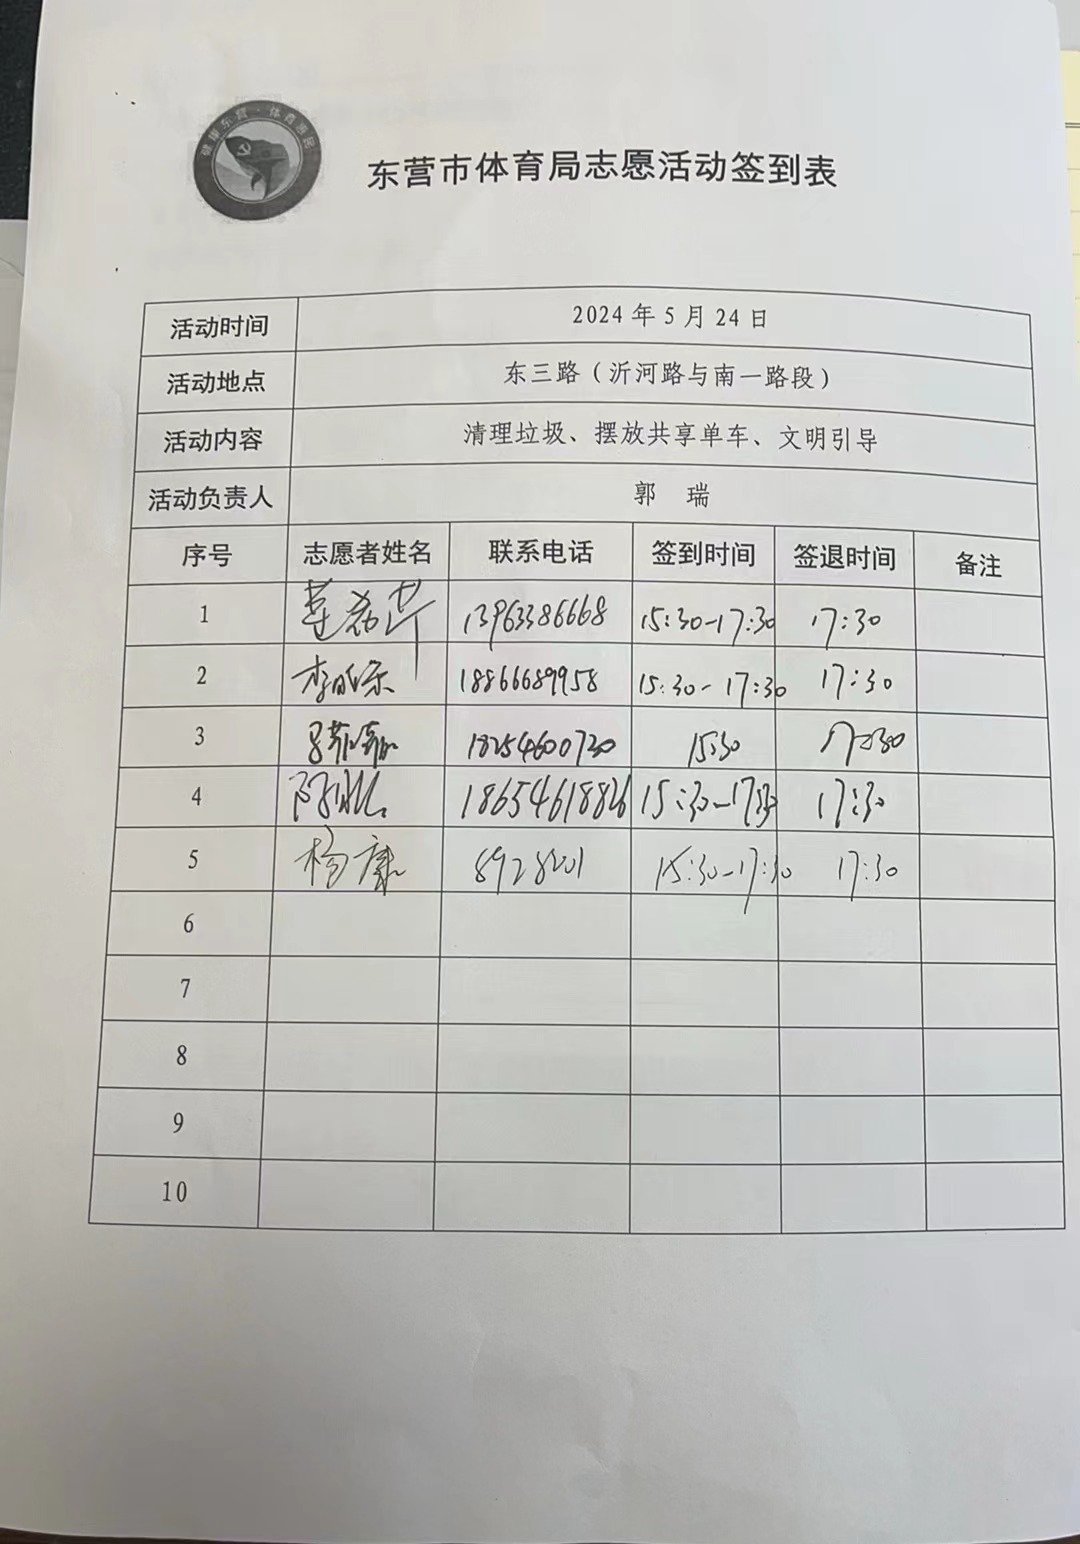 健康东营·体育惠民
东营市体育局志愿活动签到表
活动时间 2024年5月24日
活动地点 东三路（沂河路与南一路段）
活动内容 清理垃圾、摆放共享单车、文明引导
活动负责人 郭 瑞
序号 志愿者姓名 联系电话 签到时间 签退时间 备注
1 13963386668 15:30-17:30 17:30
2 18866689958 15:30-17:30 17:30
3 吕菲菲 18254600720 15:30 17:30
4 18654618826 15:30-17:30 17:30
5 杨康 8928201 15:30-17:30 17:30
6
7
8
9
10